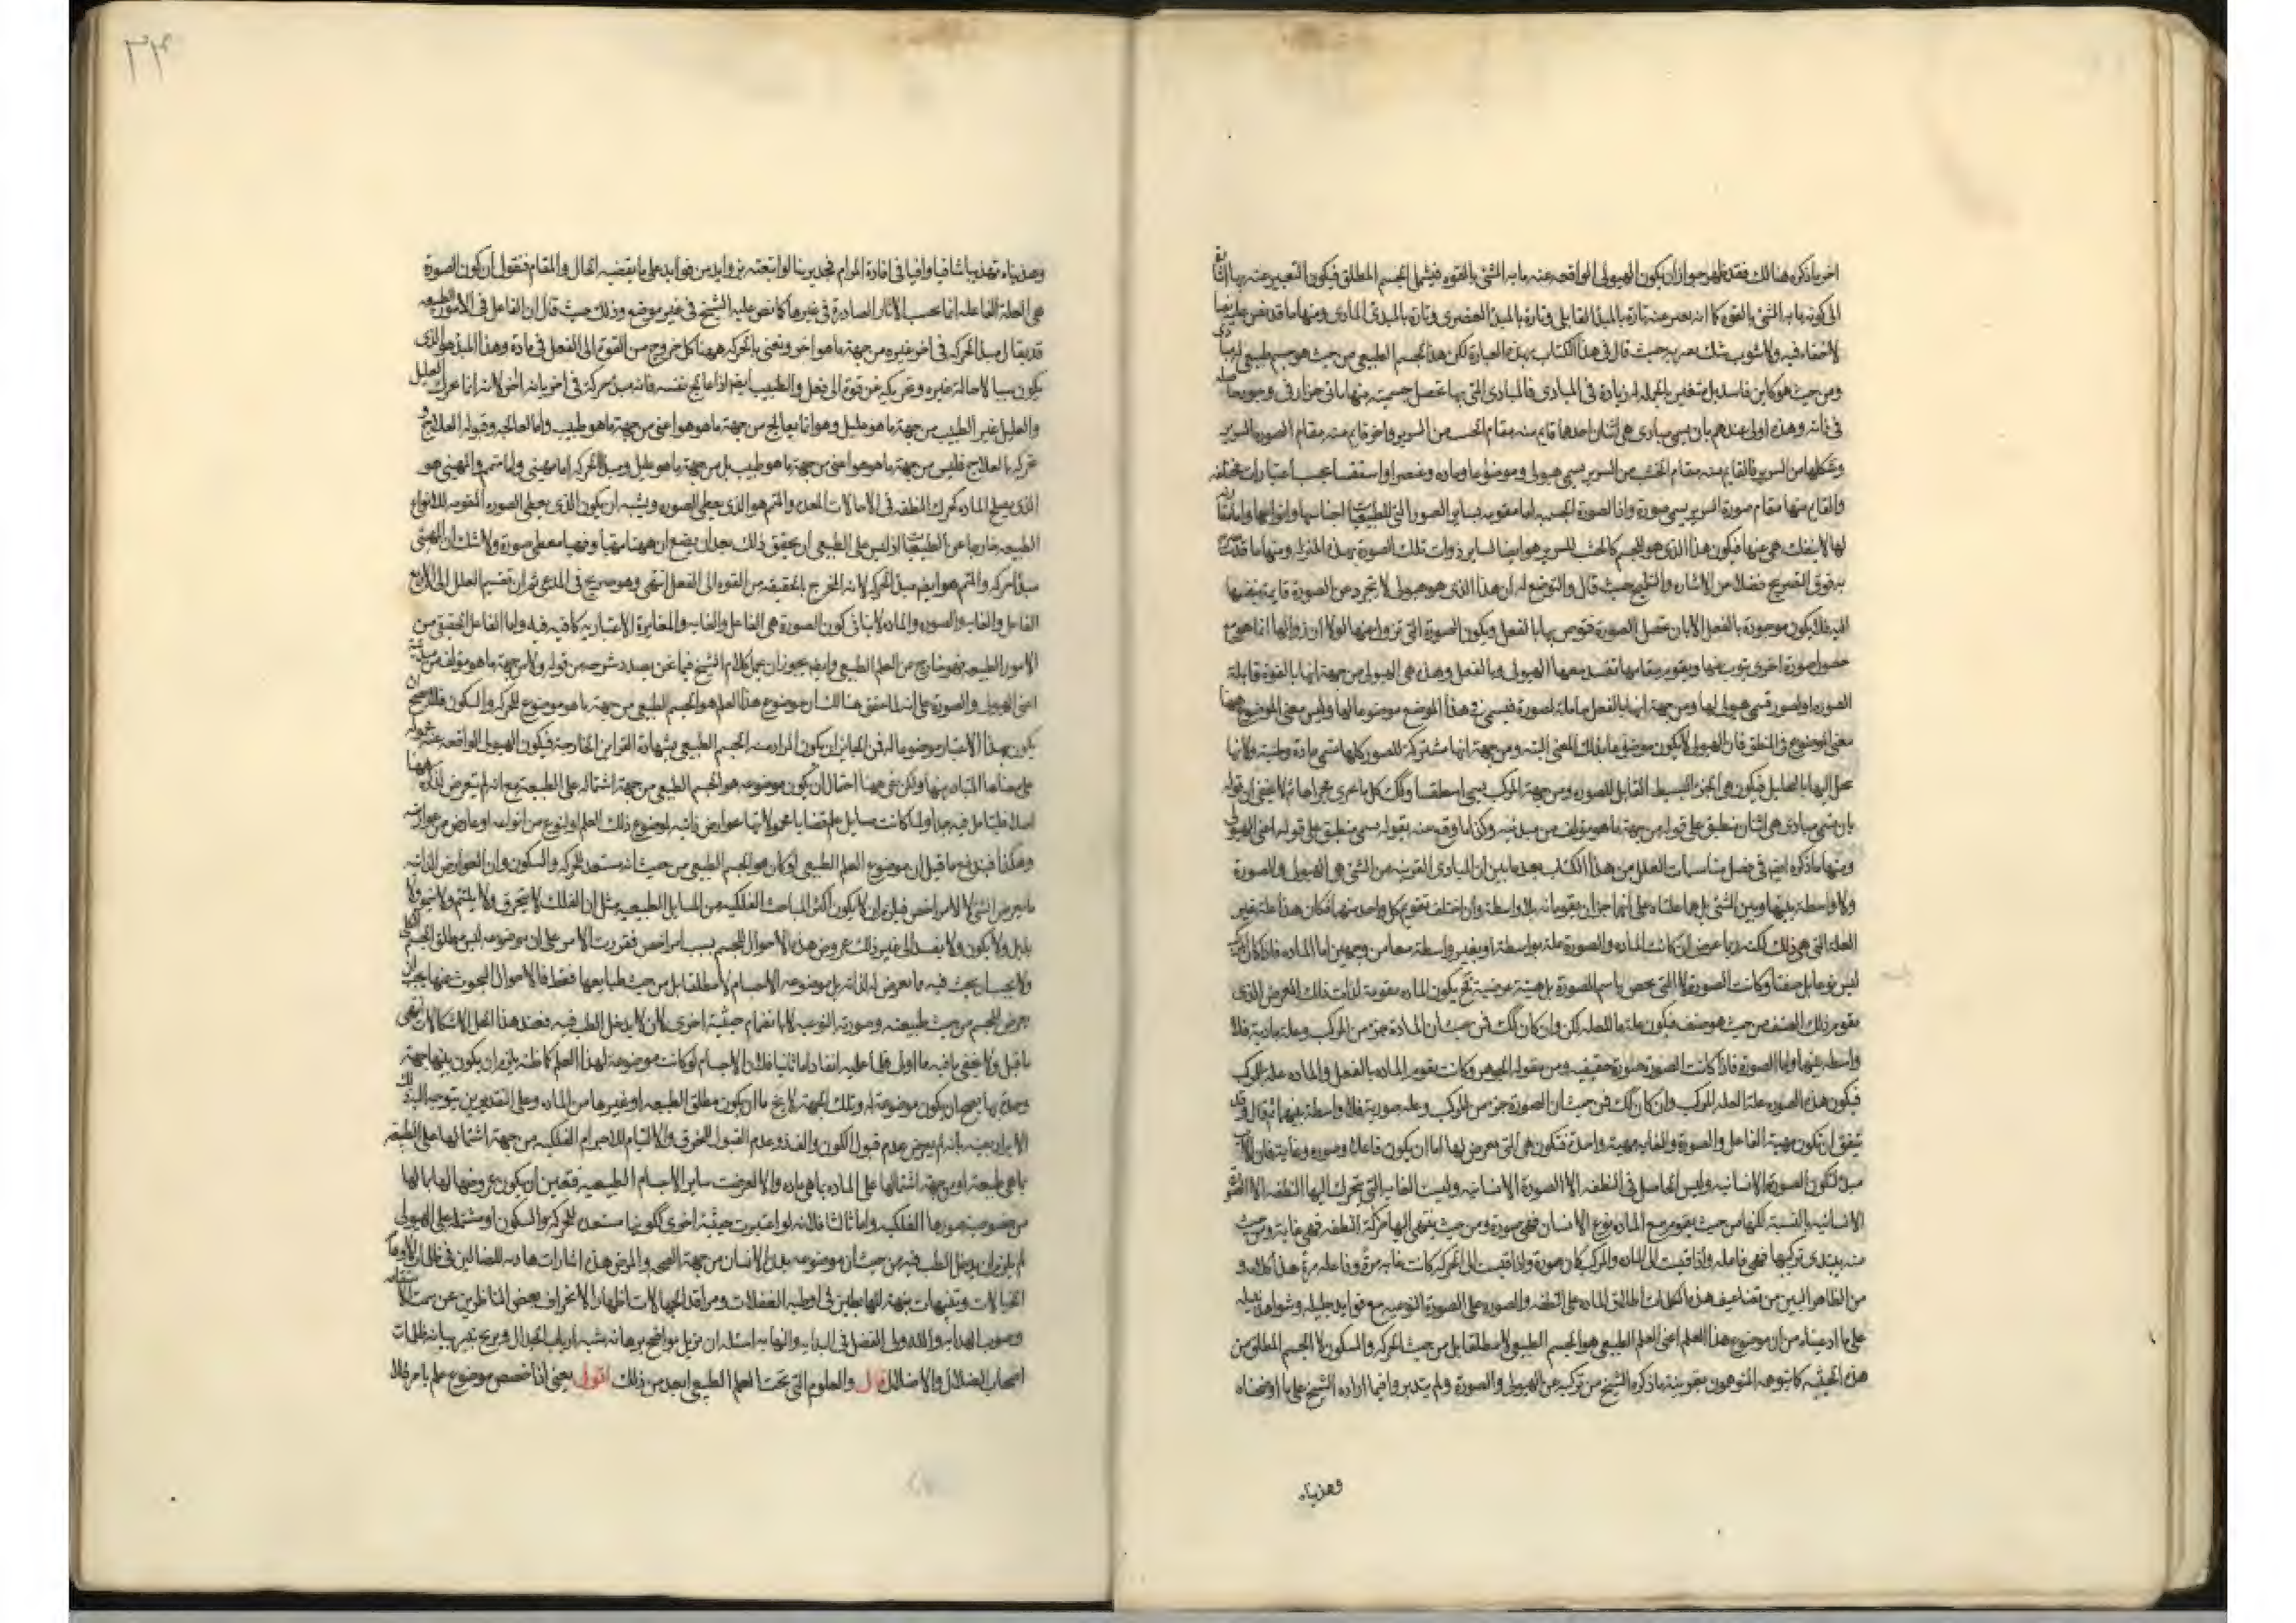 اخر ما ذكره هنالك فقد ظهر جواز ان يكون الهيولى الواقعه عنه ما به الشئ بالقوه فيشمل الجسم المطلق فيكون التعبير عنه بها
الى كونه ما به الشئ بالقوه كما انه يعبر عنه تارة بالمبدا القابلى وتارة بالمبدا العنصرى وتارة بالمبدى المادى ومنها ما قد نص عليه
لا خفاء فيه ولا شوب شك يعتريه حيث قال فى هذا الكتاب بهذه العبارة لكن هذا الجسم الطبيعى من حيث هو جسم طبيعى له مباد
ومن حيث هو كاين فاسد بل متغير بالجمله له زيادة فى المبادى فالمبادى التى بها تحصل جسميته منها ما هى اجزاء فى وجوده
فى ذاته وهذه اولى عندهم بان يسمى مبادى هى اثنان احدهما قايم منه مقام الخشب من السرير واخر قايم منه مقام الصوره السرير
وشكلها من السرير فالقايم منه مقام الخشب من السرير يسمى هيولى وموضوعا وماده وعنصرا واسطقسا بحسب اعتبارات مختلفه
والقايم منها مقام صورة السرير يسمى صورة واذا الصورة الجسميه اما متقدمه لساير الصور التى للطبيعيات اجناسها وانواعها واما مقارنة
لها لا ينفك هى عنها فيكون هذا الذى هو للجسم كالخشب للسرير هو ايضا لساير ذوات تلك الصورة بهذه المنزله ومنها ما
به فوق التصريح فضلا من الاشاره والتلويح حيث قال والتوضع له ان هذا الذى هو هيولى لا يتجرد من الصورة قايمة بنفسها
البته فلا يكون موجودة بالفعل الا بان تحصل الصورة فتوجد بها بالفعل ويكون الصورة التى تزول عنها لولا ان زوالها انما هو مع
حصول صورة اخرى ينوب عنها ويقوم مقامها تفسد معها الهيولى وبالفعل وهذه هى الهيولى من جهة انها بالقوة قابلة
الصوره او لصور فتسمى هيولى لها ومن جهة انها بالفعل حاملة لصورة فيسمى فى هذا الموضع موضوعا لها وليس معنى الموضوع ههنا
معنى الموضوع فى المنطق فان الهيولى لا يكون موضوعا بذلك المعنى البته ومن جهة انها مشتركة للصور كلها تسمى مادة وطينة ولانها
تحل اليها بالتحليل فيكون هى الجزء البسيط القابل للصوره ومن جهة المركب يسمى اسطقسا وكذلك كل ما يجرى مجراها ثم لا يخفى ان قوله
بان يسمى مبادى هى اثنان ينطبق على قوله من جهة ما هو مؤلف من مبدئيه وكذا ما وقع عنه بقوله يسمى ينطبق على قوله اعنى الهيولى
ومنها ما ذكره ايضا فى فصل مناسبات العلل من هذا الكتاب بعد ما بين ان المبادى القريبه من الشئ هى الهيولى والصورة
ولا واسطة بينهما وبين الشئ بل هما علتاه على انهما جزان يقومانه بلا واسطة وان اختلف تقويم كل واحد منهما فكان هذا علة غير
العلة التى هى ذلك لكنه ربما عرض ان كانت الماده والصورة علة بواسطة او بغير واسطة معا من وجهين اما الماده فاذا كان المركب
ليس نوعا بل صنفا وكانت الصورة لا التى يخص باسم الصورة بل هيئة عرضية فح يكون الماده مقومة لذات ذلك العرض الذى
يقوم ذلك الصنف من حيث هو صنف فيكون علة ما للعله لكن وان كان كذلك فمن حيث ان المادة جزء من المركب وعلة مادية فلا
واسطه بينهما واما الصورة فاذا كانت الصورة صورة حقيقيه ومن مقوله الجوهر وكانت يقوم الماده بالفعل والماده علة للمركب
فيكون هذه الصوره علة العله للمركب وان كان كذلك فمن حيث ان الصورة جزء من المركب وعله صورية فلا واسطة بينهما ثم قال وقد
يتفق ان يكون مهية الفاعل والصورة والغايه مهية واحدة فتكون هى التى يعرض لها اما ان يكون فاعلا وصوره وغاية فان
مبدا لتكون الصورة الانسانيه وليس الحاصل فى النطفه الا الصورة الانسانيه وليست الغايه التى يتحرك اليها النطفه الا
الانسانيه بالنسبة لكنها من حيث يقوم مع الماده نوع الانسان فهى صورة ومن حيث ينتهى اليها حركة النطفه فهى غاية ومن حيث
منه يبتدى تركيبها فهى فاعله واذا قيست الى الماده والمركب كان صورة واذا قيست الى الحركه كانت غايه مرة وفاعله مرة هذا كلامه و
من الظاهر البين من تضاعيف هذه الكلمات اطلاق الماده على النطفه والصوره على الصورة النوعيه مع فوايد جليله وشواهد
على ما ادعيناه من ان موضوع هذا العلم اعنى العلم الطبيعى هو الجسم الطبيعى لا مطلقا بل من حيث الحركه والسكون لا الجسم المطلق من
هذه الحيثيه كما توهمه المتوهمون بقرينة ما ذكره الشيخ من تركيبه عن الهيولى والصورة ولم يتدبروا فيما اراده الشيخ على ما اوضحناه
وهذبناه
٣٤
وهذبناه تهذيبا شافيا وافيا فى افادة المرام فجدير بنا لو اتبعته بزوايد من فوايد على ما يقتضيه الحال والمقام فنقول ان كون الصورة
هى العلة الفاعله انما بحسب الاثار الصادرة فى غيرها كما نص عليه الشيخ فى غير موضع وذلك حيث قال ان الفاعل فى الامور الطبيعيه
قد يقال لمبدا الحركه فى اخر غيره من جهة ما هو اخر ونعنى بالحركه ههنا كل خروج من القوة الى الفعل فى مادة وهذا المبدا هو الذى
يكون سببا لاحالة غيره وتحريكه من قوة الى فعل والطبيب ايضا اذا عالج نفسه فانه مبدا حركة فى اخر بانه اخر لانه انما حرك العليل
والعليل غير الطبيب من جهة ما هو عليل وهو انما يعالج من جهة ما هو هو اعنى من جهة ما هو طبيب واما المعالجه وقبوله العلاج و
تحركه بالعلاج فليس من جهة ما هو هو اعنى من جهة ما هو طبيب بل من جهة ما هو عليل ومبدا الحركه اما مهيئ واما متمم والمهيئ هو
الذى يصلح الماده كمحرك النطفه فى الاحالات المعده والمتمم هو الذى يعطى الصوره ويشبه ان يكون الذى يعطى الصوره المقومه للانواع
الطبيعيه خارجا عن الطبيعيات اذ ليس على الطبيعى ان يحقق ذلك بعد ان يضع ان ههنا مهيئا وههنا معطى صورة ولا شك ان المهيئ
مبدا حركه والمتمم هو ايضا مبدا الحركه لانه المخرج بالحقيقه من القوه الى الفعل انتهى وهو صريح فى المدعى ثم ان تقسيم العلل الى الاربع
الفاعل والغايه والصوره والماده لا ينافى كون الصورة هى الفاعل والغايه والمغايرة الاعتباريه كافيه فيه واما الفاعل الحقيقى من
الامور الطبيعيه فهو خارج من العلم الطبيعى وايضا يجوز ان يحمل كلام الشيخ فيما نحن بصدد شرحه من قوله ولا من جهة ما هو مؤلف من مبدئيه
اعنى الهيولى والصورة على انه لما حقق هنالك ان موضوع هذا العلم هو الجسم الطبيعى من جهة ما هو موضوع للحركه والسكون فلا يصح ان
يكون بهذا الاعتبار موضوعا له فمن الجايز ان يكون المراد منه الجسم الطبيعى بشهادة القراين الخارجة فيكون الهيولى الواقعه عنه
على معناها المتبادر منها ولكن بقى ههنا احتمال ان يكون موضوعه هو الجسم الطبيعى من جهة اشتماله على الطبيعة مع انه لم يتعرض لذكره ههنا
اصلا فليتامل فيه جدا ولما كانت مسايل علم قضايا محمولاتها عوارض ذاتيه لموضوع ذلك العلم او لنوع من انواعه او عارض من عوارضه
وهكذا فيندفع ما قيل ان موضوع العلم الطبيعى لو كان هو الجسم الطبيعى من حيث انه مستعد للحركه والسكون وان العوارض الذاتيه
ما يعرض الشئ لا لامر اخص فيلزم ان لا يكون اكثر المباحث الفلكيه من المسايل الطبيعيه مثل ان الفلك لا يتخرق ولا يلتئم ولا ينمو ولا
يذبل ولا يكون ولا يفسد الى غير ذلك عروض هذه الاحوال للجسم بسبب امر اخص فقررت الامر على ان موضوعه ليس مطلق الجسم
ولا يجب ان يبحث فيه ما يعرض له لذاته بل موضوعه الاجسام لا مطلقا بل من حيث طبايعها فقط فالاحوال المبحوث عنها يجب ان
يعرض للجسم من حيث طبيعته وصورته النوعيه لا بانضمام حيثية اخرى لان لا يدخل الطب فيه فعند هذا انحل الاشكالات انتهى
ما قيل ولا يخفى ما فيه اما اولا فلما عليه انفا واما ثانيا فلان الاجسام لو كانت موضوعة لهذا العلم كما ظنه يلزم ان يكون بينها جهة
وحدة بها يصح ان يكون موضوعة له وتلك الجهة لا يخ ما ان يكون مطلق الطبيعه او غيرها من الماده وعلى التقديرين يتوجه
الايراد بعينه بانه لم يعرض عدم قبول الكون والفساد وعدم القبول للخرق والالتيام للاجرام الفلكيه من جهة اشتمالها على الطبيعه
بما هى طبيعة او من جهة اشتمالها على الماده بما هى ماده والا لعرضت ساير الاجسام الطبيعيه فتعين ان يكون عروضها لها بما لها
من خصوصية صورها الفلكيه واما ثالثا فلانه لو اعتبرت حيثية اخرى ككونها مستعده للحركه والسكون او مشتمله على الهيولى
لم يلزم ان يدخل الطب فيه من حيث ان موضوعه بدن الانسان من جهة الصحه والمرض هذه اشارات هاديه للضالين فى ظلمات الاوهام
الخيالات وتنبيهات منبهة للهابطين فى اوطية الغفلات ومراقد الجهالات اظهارا لانحراف بعض الناظرين عن سمت
وصوب الهدايه والله ولى الفضل فى البدايه والنهايه اسئله ان يزيل بواضح برهانه شبه ارباب الجدال ويزيح بنير بيانه ظلمات
اصحاب الضلال والاضلال قال والعلوم التى تحت العلم الطبيعى ابعد من ذلك اقول يعنى اذا خصص موضوع علم بامر فلا